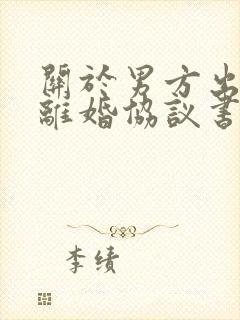 關於男方出
離婚協議書
李绩